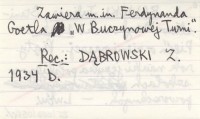 Zawiera m.in. Ferdynanda
Goetla „W Buczynowej Turni".
Rec.: DĄBROWSKI Z.
1934 b.